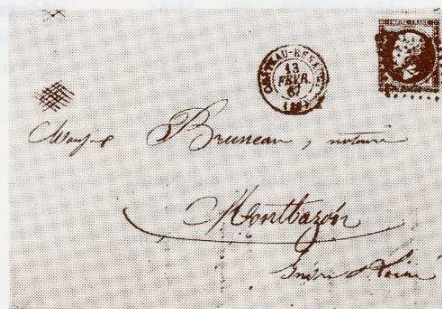 CHATEAU-RENAULT
13
FEVR.
67
Bruneau, notaire
Montbazon
Indre et Loire